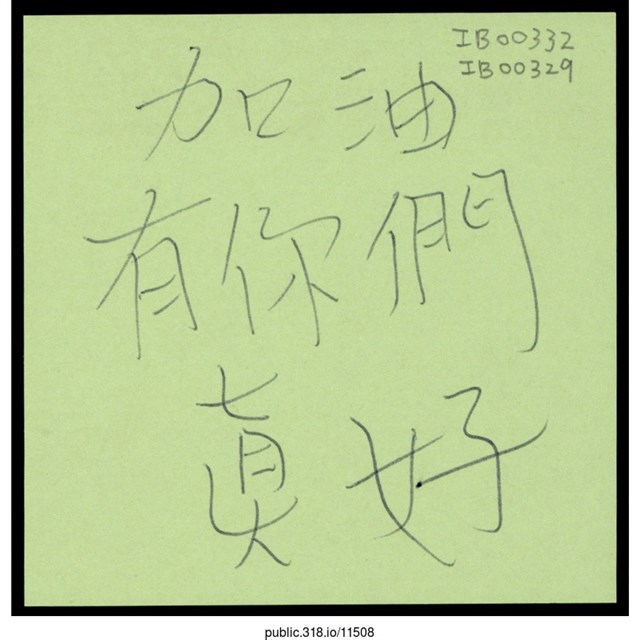 IB00332
IB00329
加油
有你們
真好
public.318.io/11508